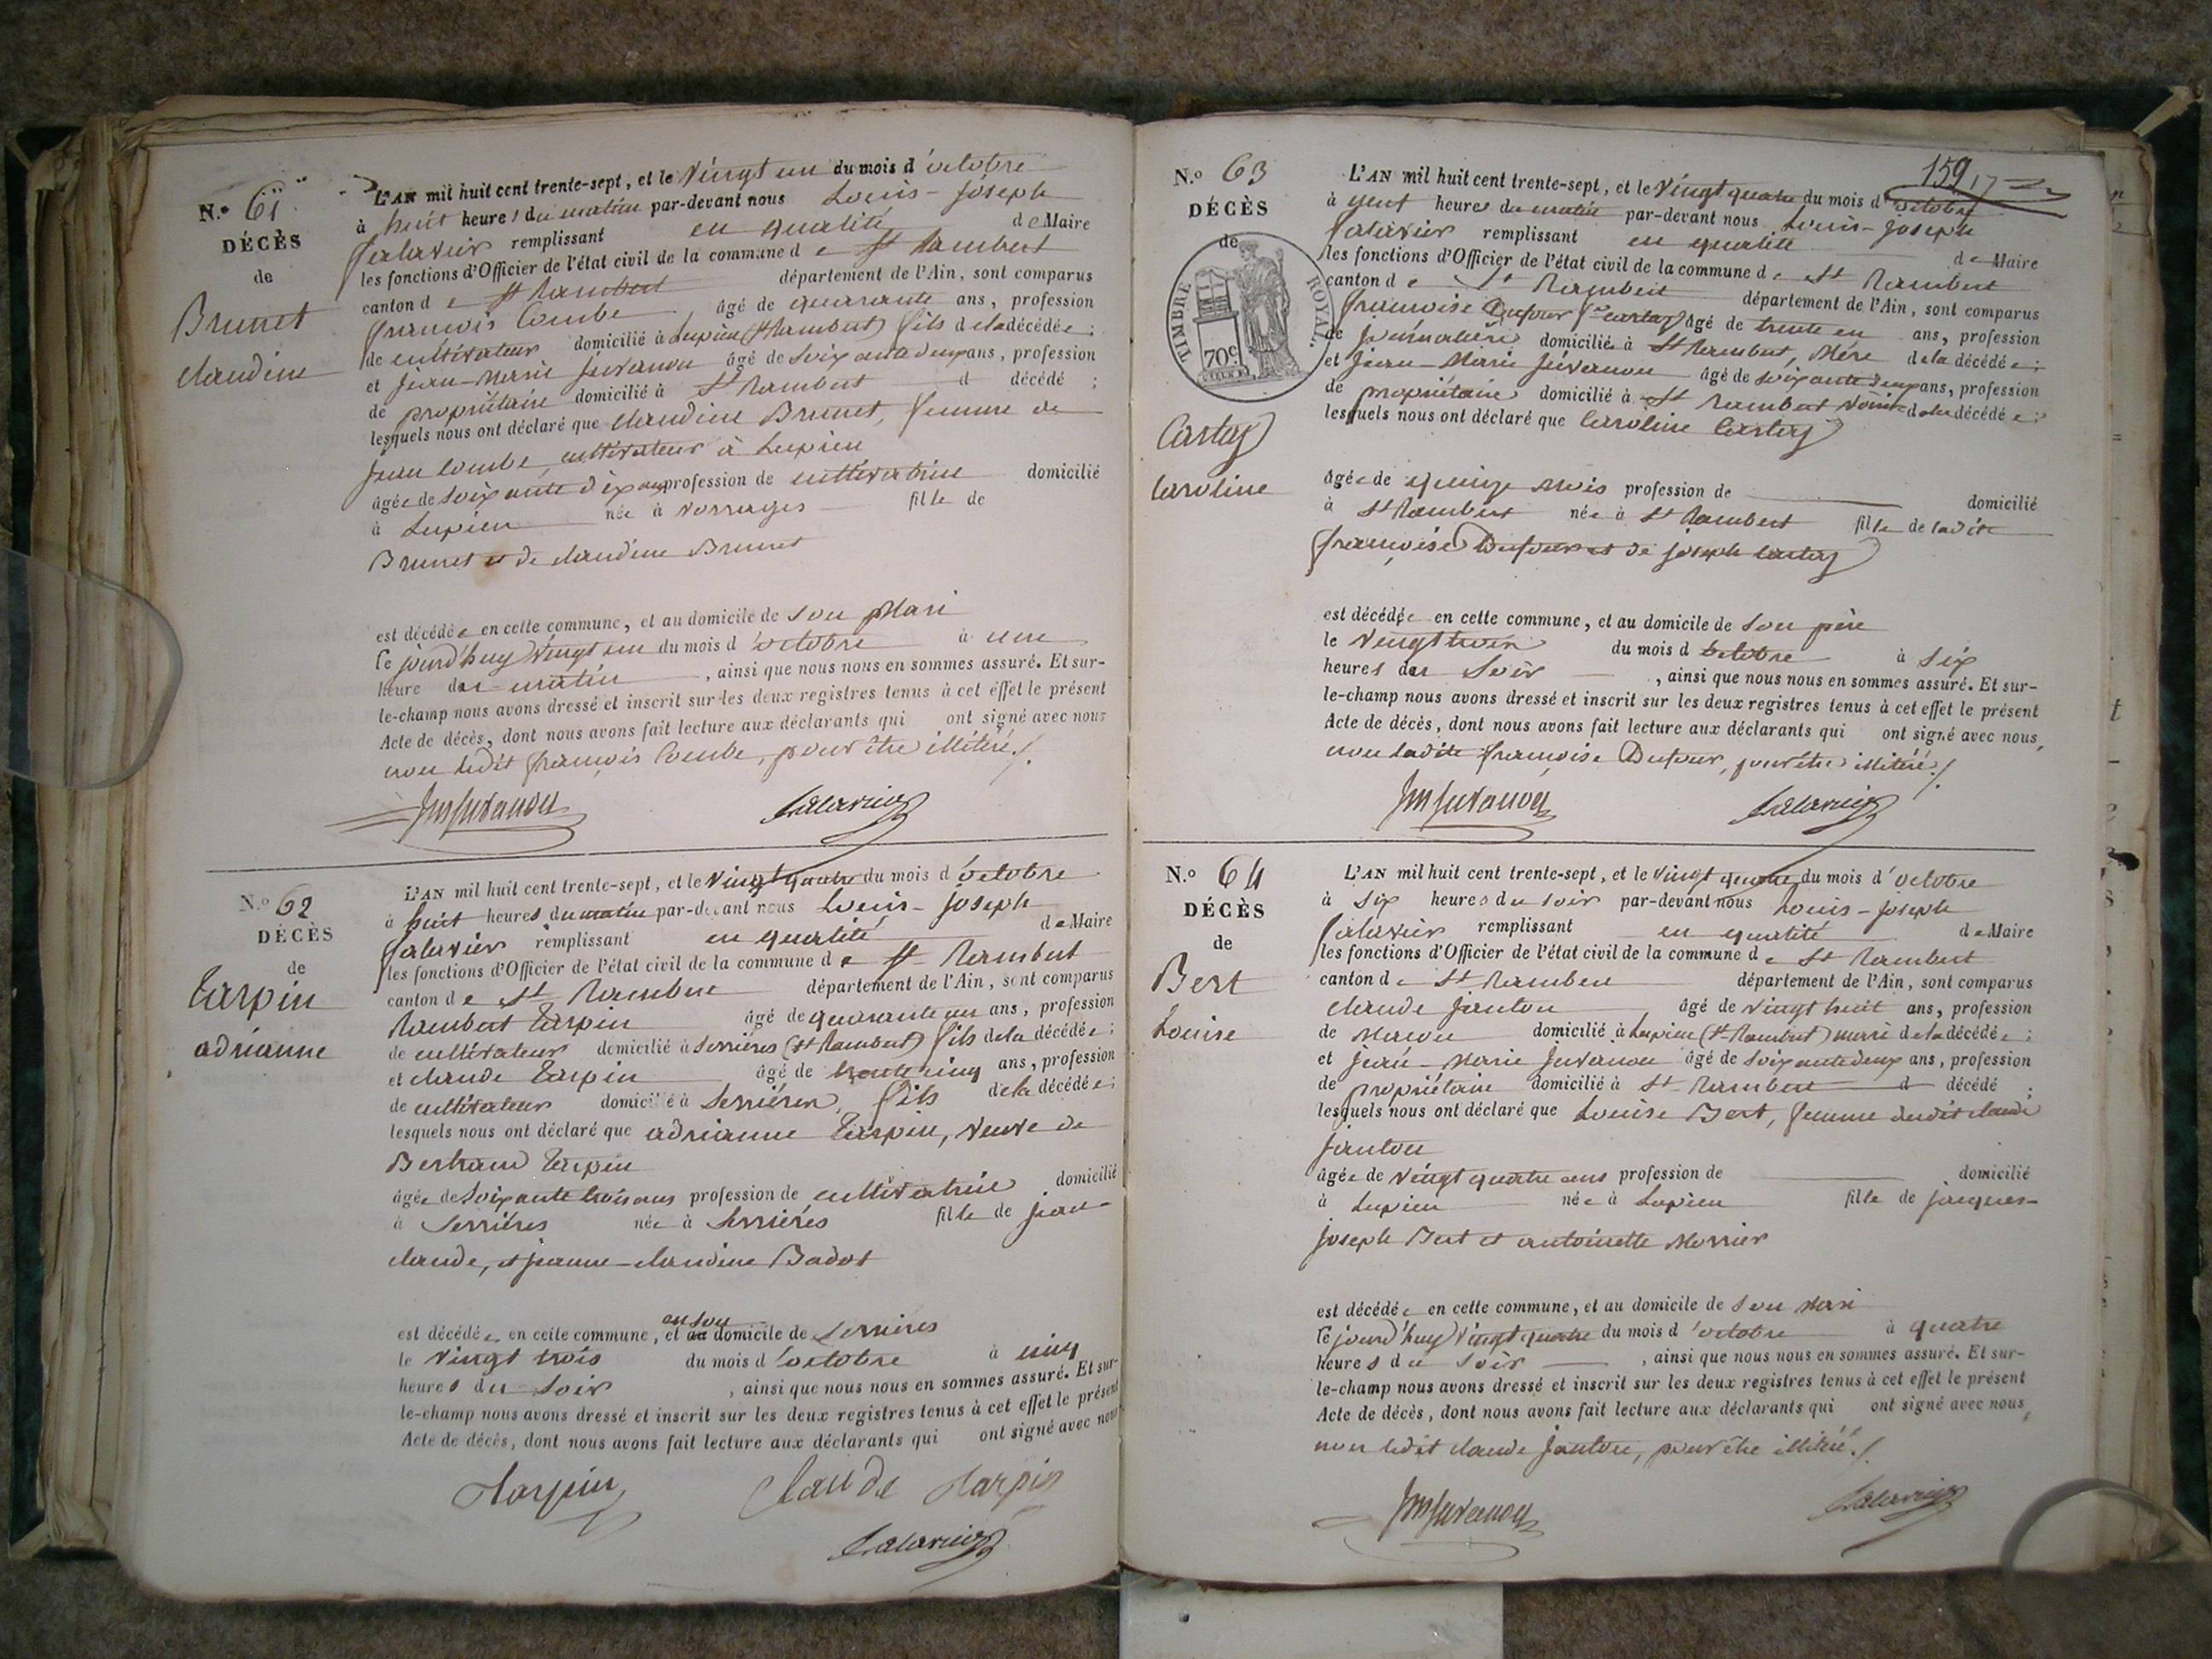 N.º 61
DÉCÈS
de
Brunet
claudine
L'AN mil huit cent trente-sept, et le vingt un du mois d'octobre
à huit heures du matin par-devant nous Louis-joseph
Salavier remplissant en qualité de Maire
les fonctions d'Officier de l'état civil de la commune de St Rambert
canton de St Rambert département de l'Ain, sont comparus
françois Combe âgé de quarante ans, profession
de cultivateur domicilié à Lupieu (St Rambert) fils de la décédée;
et jean-marie juvanon âgé de soixante deux ans, profession
de propriétaire domicilié à St Rambert d décédé ;
lesquels nous ont déclaré que claudine Brunet, femme de
jean Combe, cultivateur à Lupieu
âgée de soixante dix ans profession de cultivatrice domicilié
à Lupieu née à vorrages fille de
Brunet et de claudine Brunet
est décédée en cette commune, et au domicile de son mari
le jourd'huy vingt un du mois d'octobre à une
heure du matin, ainsi que nous nous en sommes assuré. Et sur-
le-champ nous avons dressé et inscrit sur les deux registres tenus à cet effet le présent
Acte de décès, dont nous avons fait lecture aux déclarants qui ont signé avec nous
non ledit françois Combe, pour être illitéré./.
Jm Juvanon
Salavier
N.º 62
DÉCÈS
de
Tarpin
adrianne
L'AN mil huit cent trente-sept, et le vingt quatre du mois d'octobre
à huit heures du matin par-devant nous Louis-joseph
Salavier remplissant en qualité de Maire
les fonctions d'Officier de l'état civil de la commune de St Rambert
canton de St Rambert département de l'Ain, sont comparus
Rambert Tarpin âgé de quarante un ans, profession
de cultivateur domicilié à Serrières (St Rambert) fils de la décédée;
et claude Tarpin âgé de trente cinq ans, profession
de cultivateur domicilié à Serrières, fils de la décédée;
lesquels nous ont déclaré que adrianne Tarpin, veuve de
Bertrand Tarpin
âgée de soixante trois ans profession de cultivatrice domicilié
à Serrières née à Serrières fille de jean-
claude, et jeanne-claudine Badot
est décédée en cette commune, et en son domicile de Serrières
le vingt trois du mois d'octobre à cinq
heures du soir, ainsi que nous nous en sommes assuré. Et sur-
le-champ nous avons dressé et inscrit sur les deux registres tenus à cet effet le présent
Acte de décès, dont nous avons fait lecture aux déclarants qui ont signé avec nous
Tarpin
Claude Tarpin
Salavier
159
N.º 63
DÉCÈS
de
TIMBRE ROYAL.
70c.
Cartay
Caroline
L'AN mil huit cent trente-sept, et le vingt quatre du mois d'octobre
à neuf heures du matin par-devant nous Louis-joseph
Salavier remplissant en qualité de Maire
les fonctions d'Officier de l'état civil de la commune de St Rambert
canton de St Rambert département de l'Ain, sont comparus
françoise Dufour fe Cartay âgé de trente un ans, profession
de journalière domiciliée à St Rambert, Mère de la décédée;
et jean-Marie juvanon âgé de soixante deux ans, profession
de propriétaire domicilié à St Rambert voisin de la décédée;
lesquels nous ont déclaré que Caroline Cartay
âgée de quinze mois profession de domicilié
à St Rambert née à St Rambert fille de ladite
françoise Dufour et de joseph Cartay
est décédée en cette commune, et au domicile de son père
le vingt trois du mois d octobre à six
heures du soir, ainsi que nous nous en sommes assuré. Et sur-
le-champ nous avons dressé et inscrit sur les deux registres tenus à cet effet le présent
Acte de décès, dont nous avons fait lecture aux déclarants qui ont signé avec nous,
non ladite françoise Dufour, pour être illitéré./.
Jm Juvanon
Salavier
N.º 64
DÉCÈS
de
Bert
Louise
L'AN mil huit cent trente-sept, et le vingt quatre du mois d'octobre
à six heures du soir par-devant nous Louis-joseph
Salavier remplissant en qualité de Maire
les fonctions d'Officier de l'état civil de la commune de St Rambert
canton de St Rambert département de l'Ain, sont comparus
claude janton âgé de vingt huit ans, profession
de Macon domicilié à Lupieu (St Rambert) mari de la décédée;
et jean-Marie juvanon âgé de soixante deux ans, profession
de propriétaire domicilié à St Rambert d décédé ;
lesquels nous ont déclaré que Louise Bert, femme dudit claude
janton
âgée de vingt quatre ans profession de domicilié
à Lupieu née à Lupieu fille de jacques-
joseph Bert et antoinette Merrier
est décédée en cette commune, et au domicile de son mari
le jourd'huy vingt quatre du mois d'octobre à quatre
heures du soir, ainsi que nous nous en sommes assuré. Et sur-
le-champ nous avons dressé et inscrit sur les deux registres tenus à cet effet le présent
Acte de décès, dont nous avons fait lecture aux déclarants qui ont signé avec nous,
non ledit claude janton, pour être illitéré./.
Jm Juvanon
Salavier